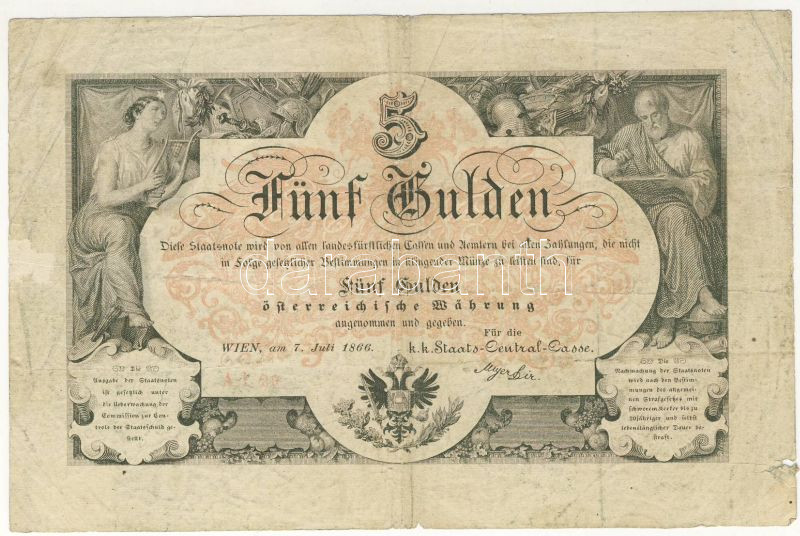 5
Fünf Gulden
Diese Staatsnote wird von allen landesfürstlichen Cassen und Aemtern bei allen Zahlungen, die nicht
in Folge gesetzlicher Bestimmungen in klingender Münze zu leisten sind, für
Fünf Gulden
österreichische Währung
angenommen und gegeben.
WIEN, am 7. Juli 1866.
Für die
k.k. Staats-Central-Casse.
Die
Ausgabe der Staatsnoten
ist gesetzlich unter
die Ueberwachung der
Commission zur Con-
trole der Staatsschuld ge-
stellt.
Die
Nachmachung der Staatsnoten
wird nach den Bestim-
mungen des allgemei-
nen Strafgesetzes mit
schwerem Kerker bis zu
20jähriger und selbst
lebenslänglicher Dauer be-
straft.
darabanth